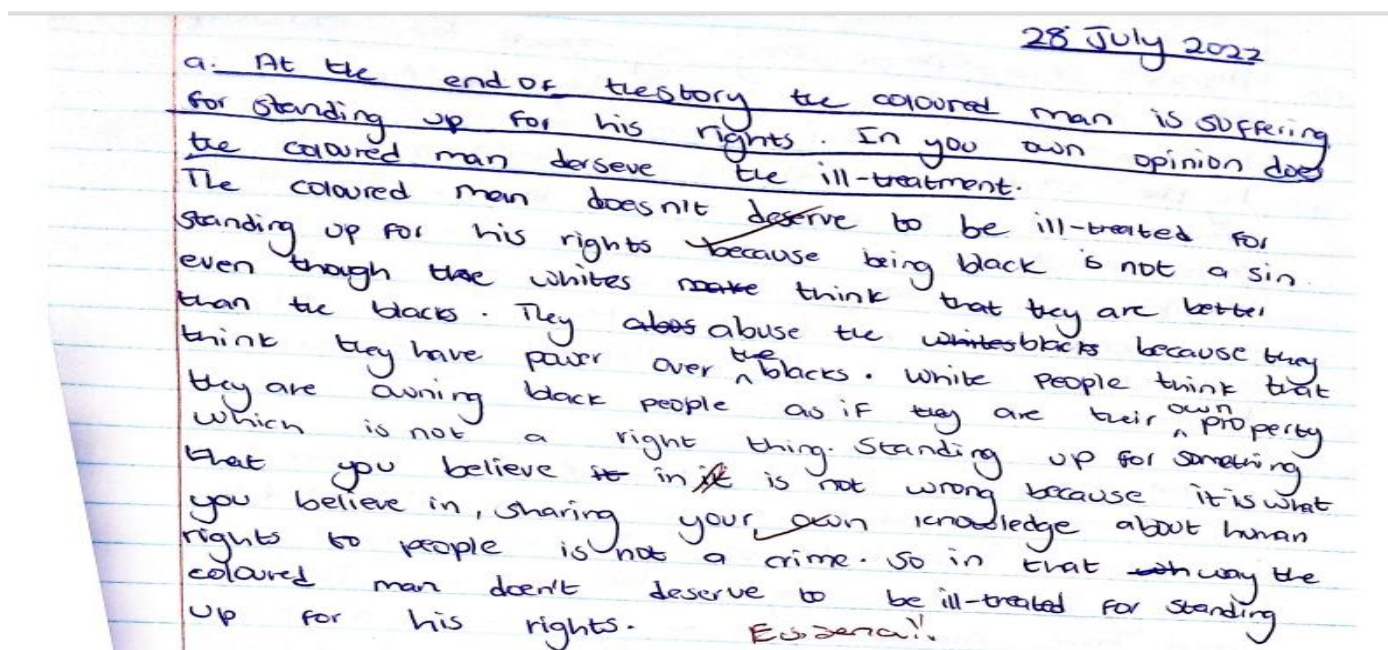 28 July 2022
a. At the end of the story the coloured man is suffering
for standing up for his rights. In you own opinion does
the coloured man derseve the ill-treatment.
The coloured man doesn't deserve to be ill-treated for
standing up for his rights because being black is not a sin
even though the whites make think that they are better
than the blacks. They abos abuse the whites blacks because they
think they have power over the blacks. White people think that
they are owning black people as if they are their own property
which is not a right thing. Standing up for something
that you believe it in it is not wrong because it is what
you believe in, sharing your own knowledge about human
rights to people is not a crime. So in that way the
coloured man doen't deserve to be ill-treated for standing
up for his rights.